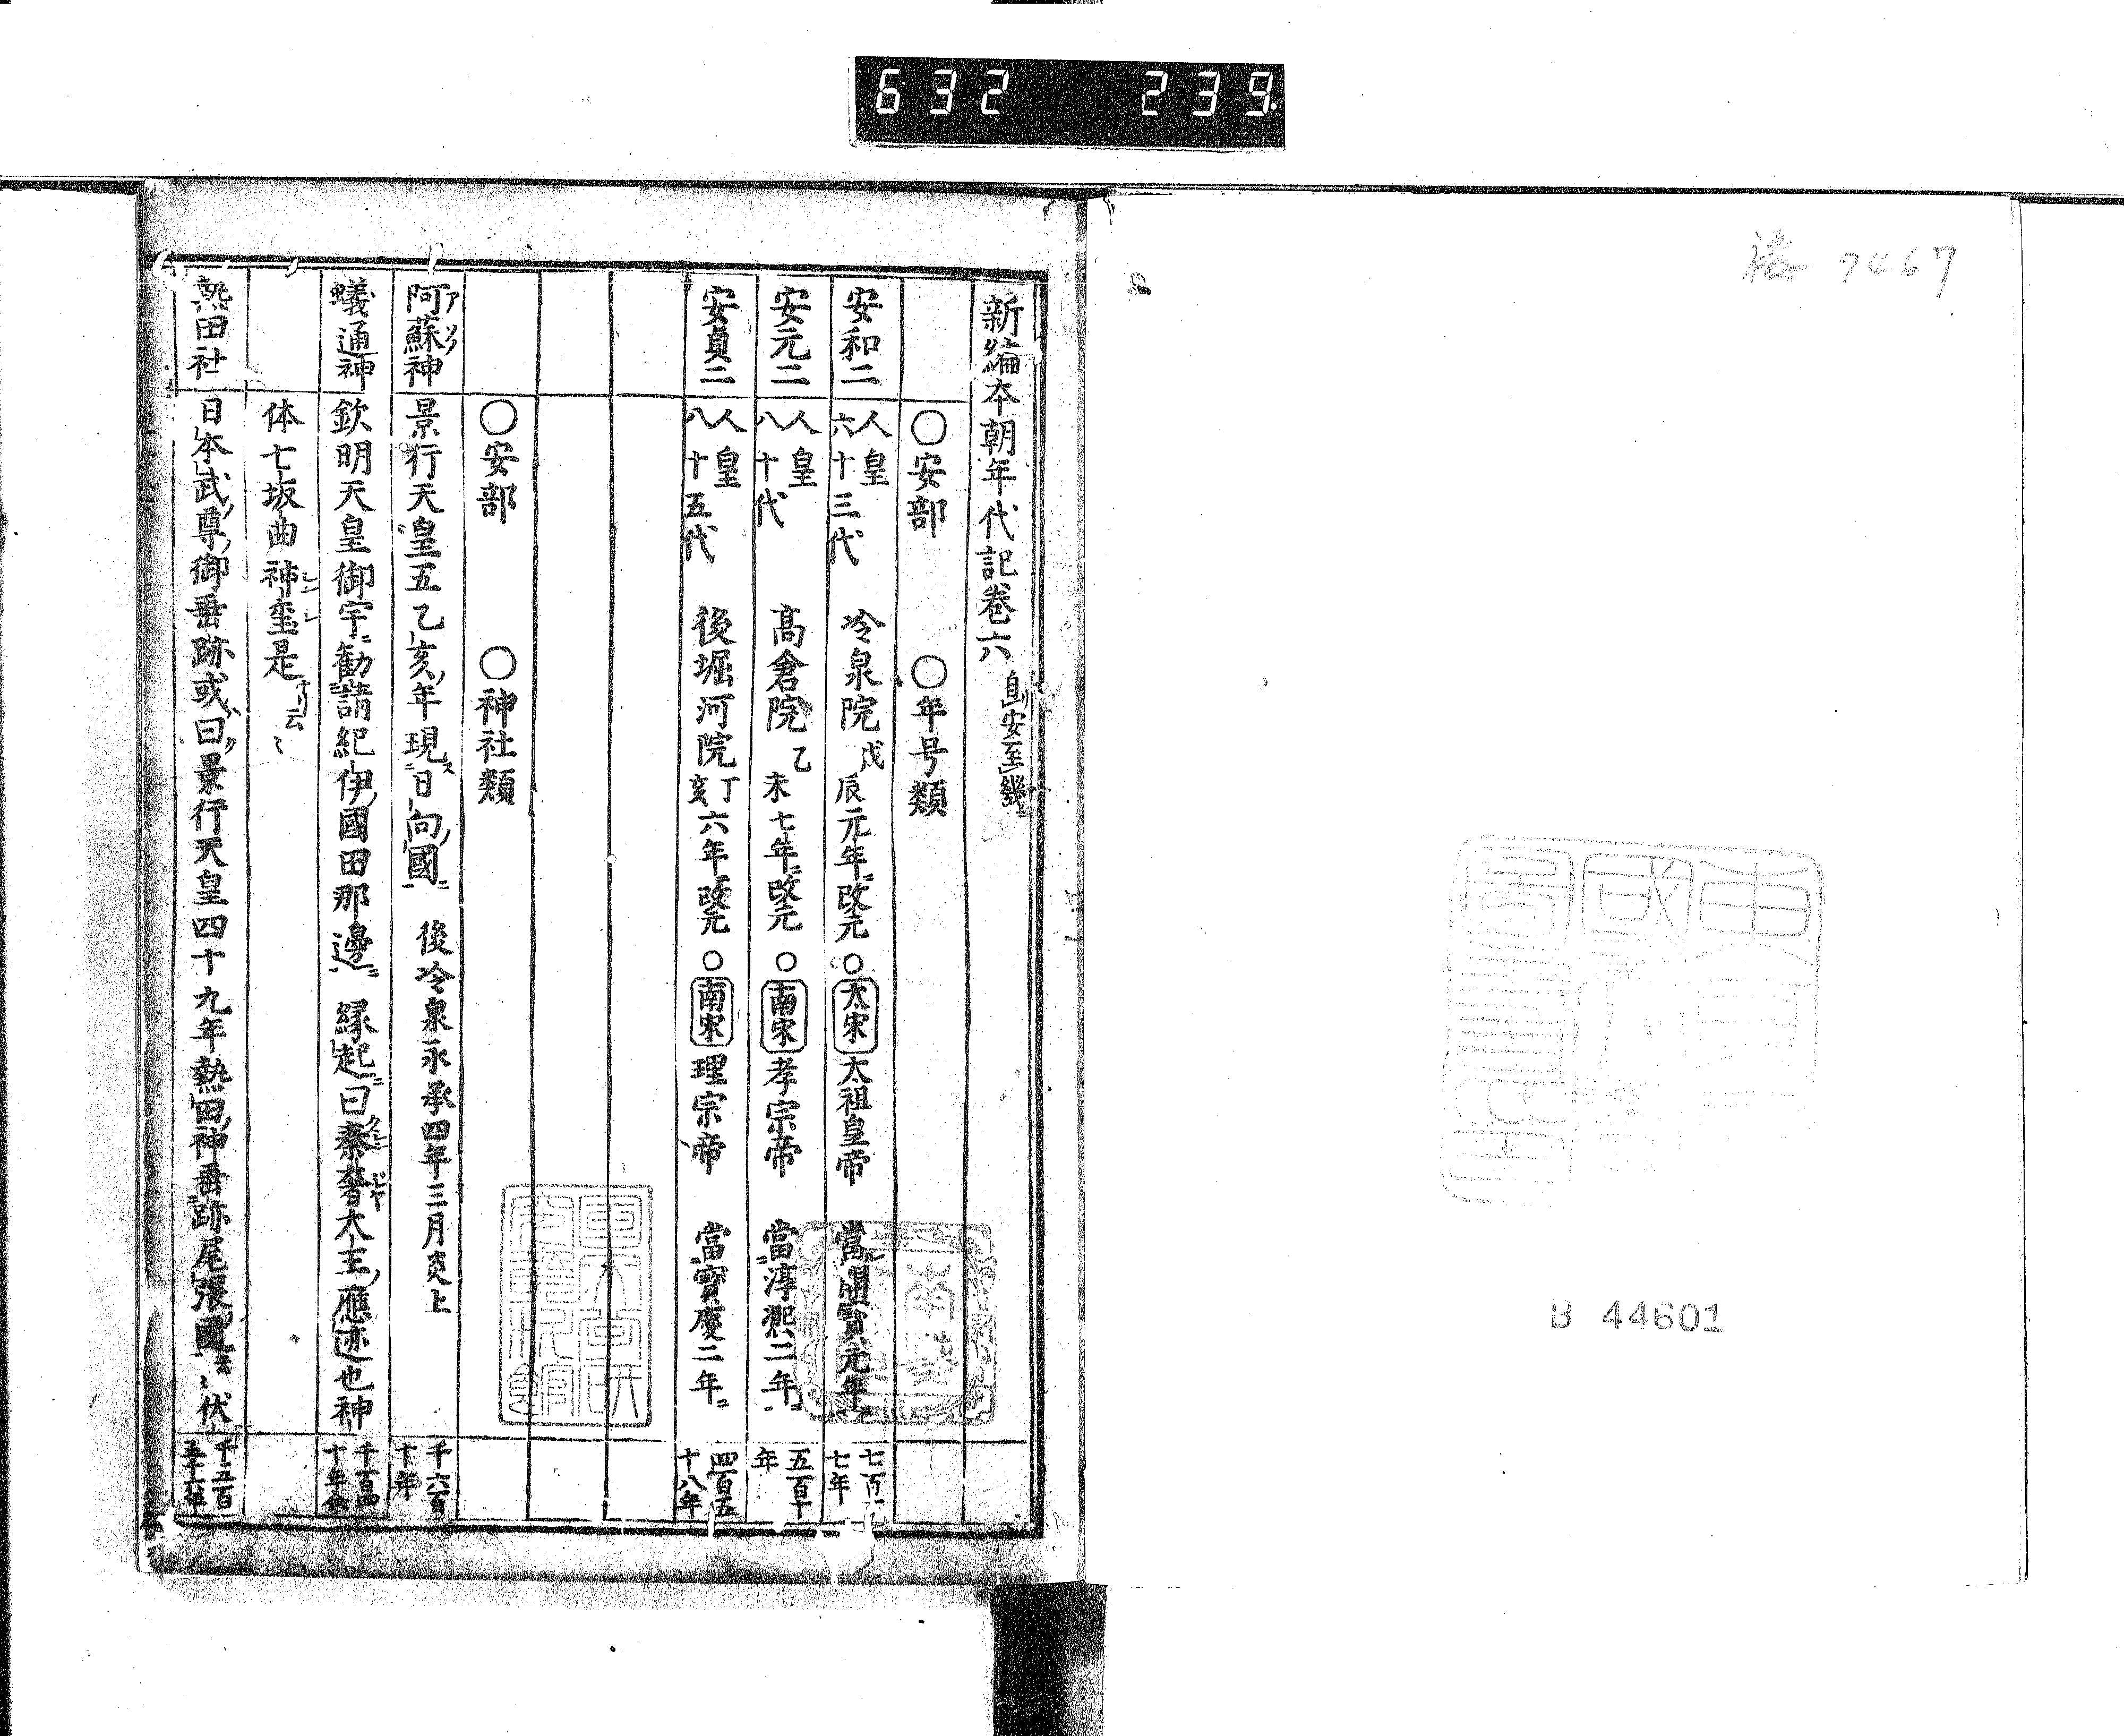 632 239.
7467
B 44601
新編本朝年代記巻六 自安至幾
○安部 ○年号類
安和二 人皇六十三代 冷泉院 戊辰元年改元 ○太宋 太祖皇帝 當開寳元年 七百十七年
安元二 人皇八十代 髙倉院 乙未七年改元 ○南宋 孝宗帝 當淳熈二年 五百十年
安貞二 人皇八十五代 後堀河院 丁亥六年改元 ○南宋 理宗帝 當寳慶二年 四百五十八年
○安部 ○神社類
阿蘇神 景行天皇五乙亥年現日向國 後冷泉永承四年三月炎上 千六百十年
蟻通神 欽明天皇御宇勧請紀伊國田那邊 縁起曰秦奢大王應迹也神 千百四十年余
体七坂曲神璽是ナリ云〻
熱田社 日本武尊御垂跡或曰景行天皇四十九年熱田神垂跡尾張國云〻伏 千五百